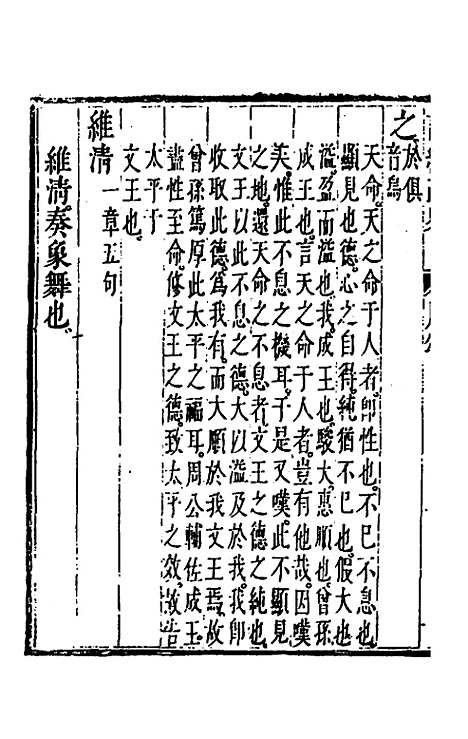 之於俱音烏
天命天之命于人者即性也不已不息也
顯見也德心之自得純猶不已也假大也
溢盈而溢也我成王也駿大惠順也曾孫
成王也言天之命于人者豈有他哉因嘆
美惟此不息之機耳于是又嘆此不顯見
之地還天命之不息者文王之德之純也
文王以此不息之德大以溢及於我我即
收取此德為我有而大順於我文王焉故
曾孫篤厚此太平之福耳周公輔佐成王
盡性至命脩文王之德致太平之效故告
太平于
文王也
維清一章五句
維清奏象舞也